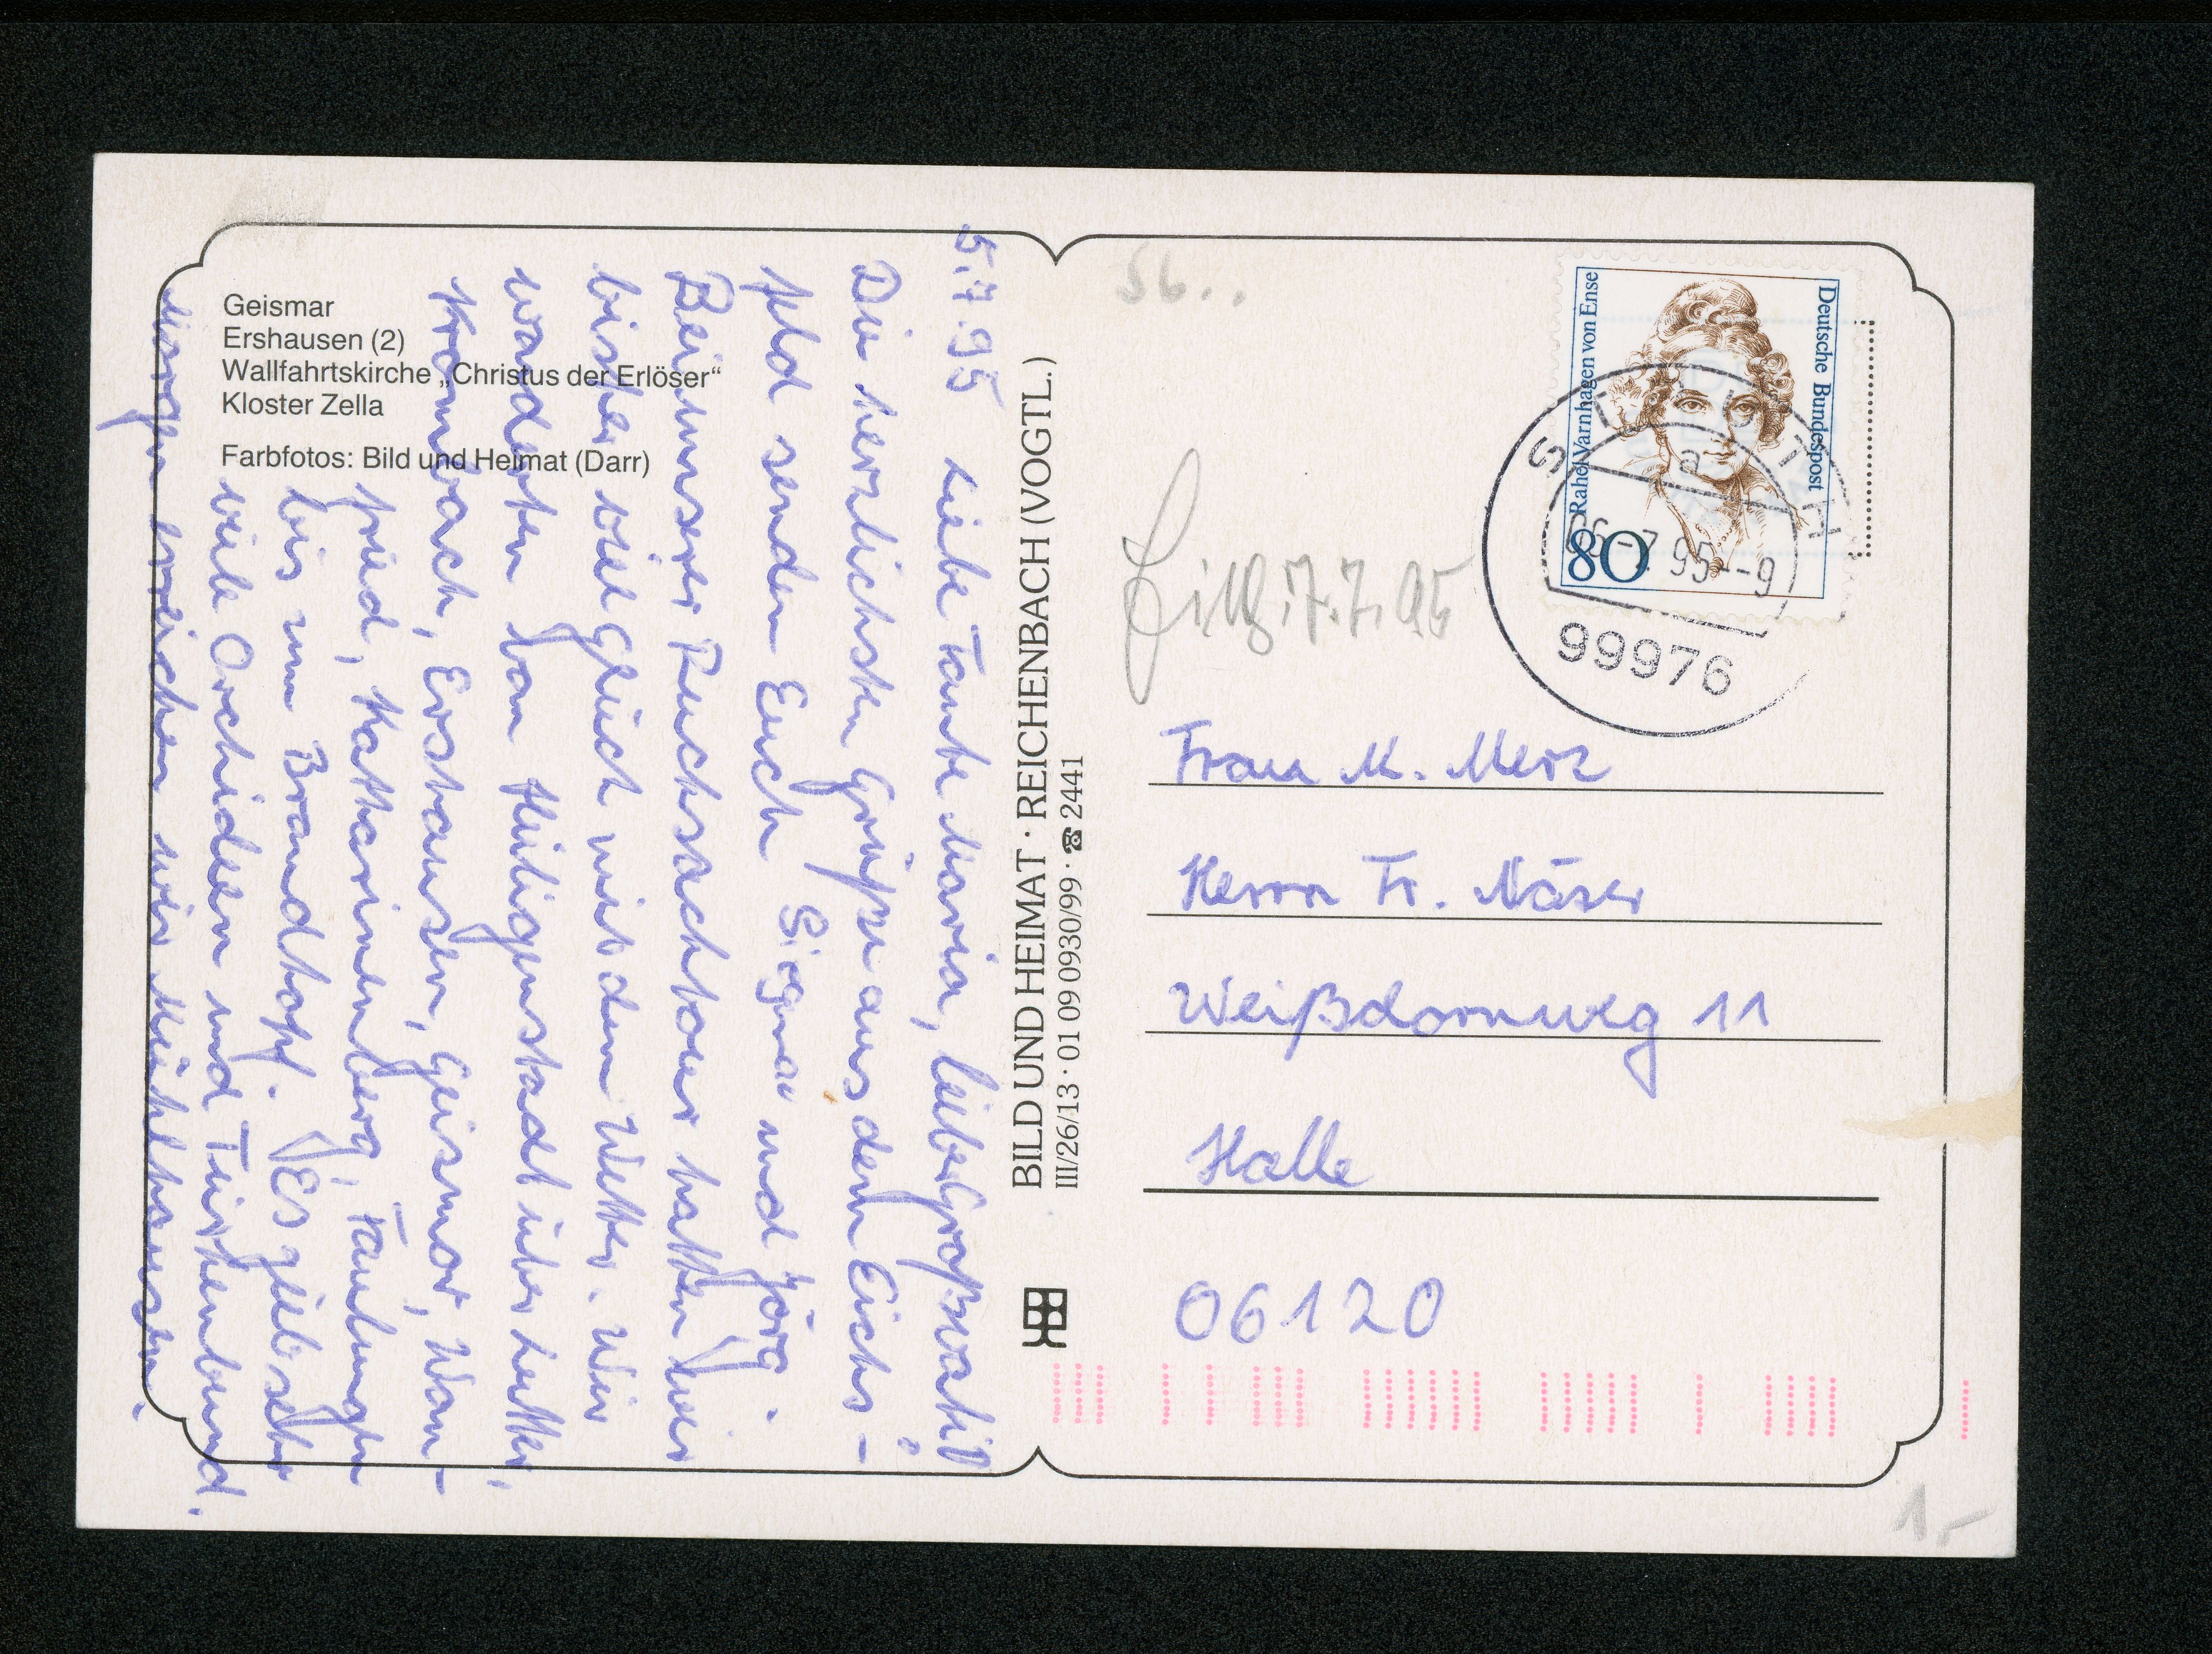 Geismar
Ershausen (2)
Wallfahrtskirche „Christus der Erlöser“
Kloster Zella
Farbfotos: Bild und Heimat (Darr)
5.7.95 Liebe Tante Maria, lieber Großvati!
Die herzlichsten Grüße aus dem Eichs-
feld senden Euch Sigrun und Jörg.
Bei unserer Rucksacktour hatten wir
bisher viel Glück mit dem Wetter. Wir
wanderten von Heiligenstadt über Lutter,
Krombach, Ershausen, Geismar, Wan-
fried, Katharinenberg, Faulungen
bis zum Brandkopf. Es gibt sehr
viele Orchideen und Türkenbund.
Morgen erreichen wir Mühlhausen.
BILD UND HEIMAT · REICHENBACH (VOGTL.)
III/26/13 · 01 09 0930/99 · ☎ 2441
Deutsche Bundespost
Rahel Varnhagen von Ense
80
a
-7.95--9
99976
7.7.95
Frau M. Merz
Herrn Fr. Näser
Weißdornweg 11
Halle
06120
1,-